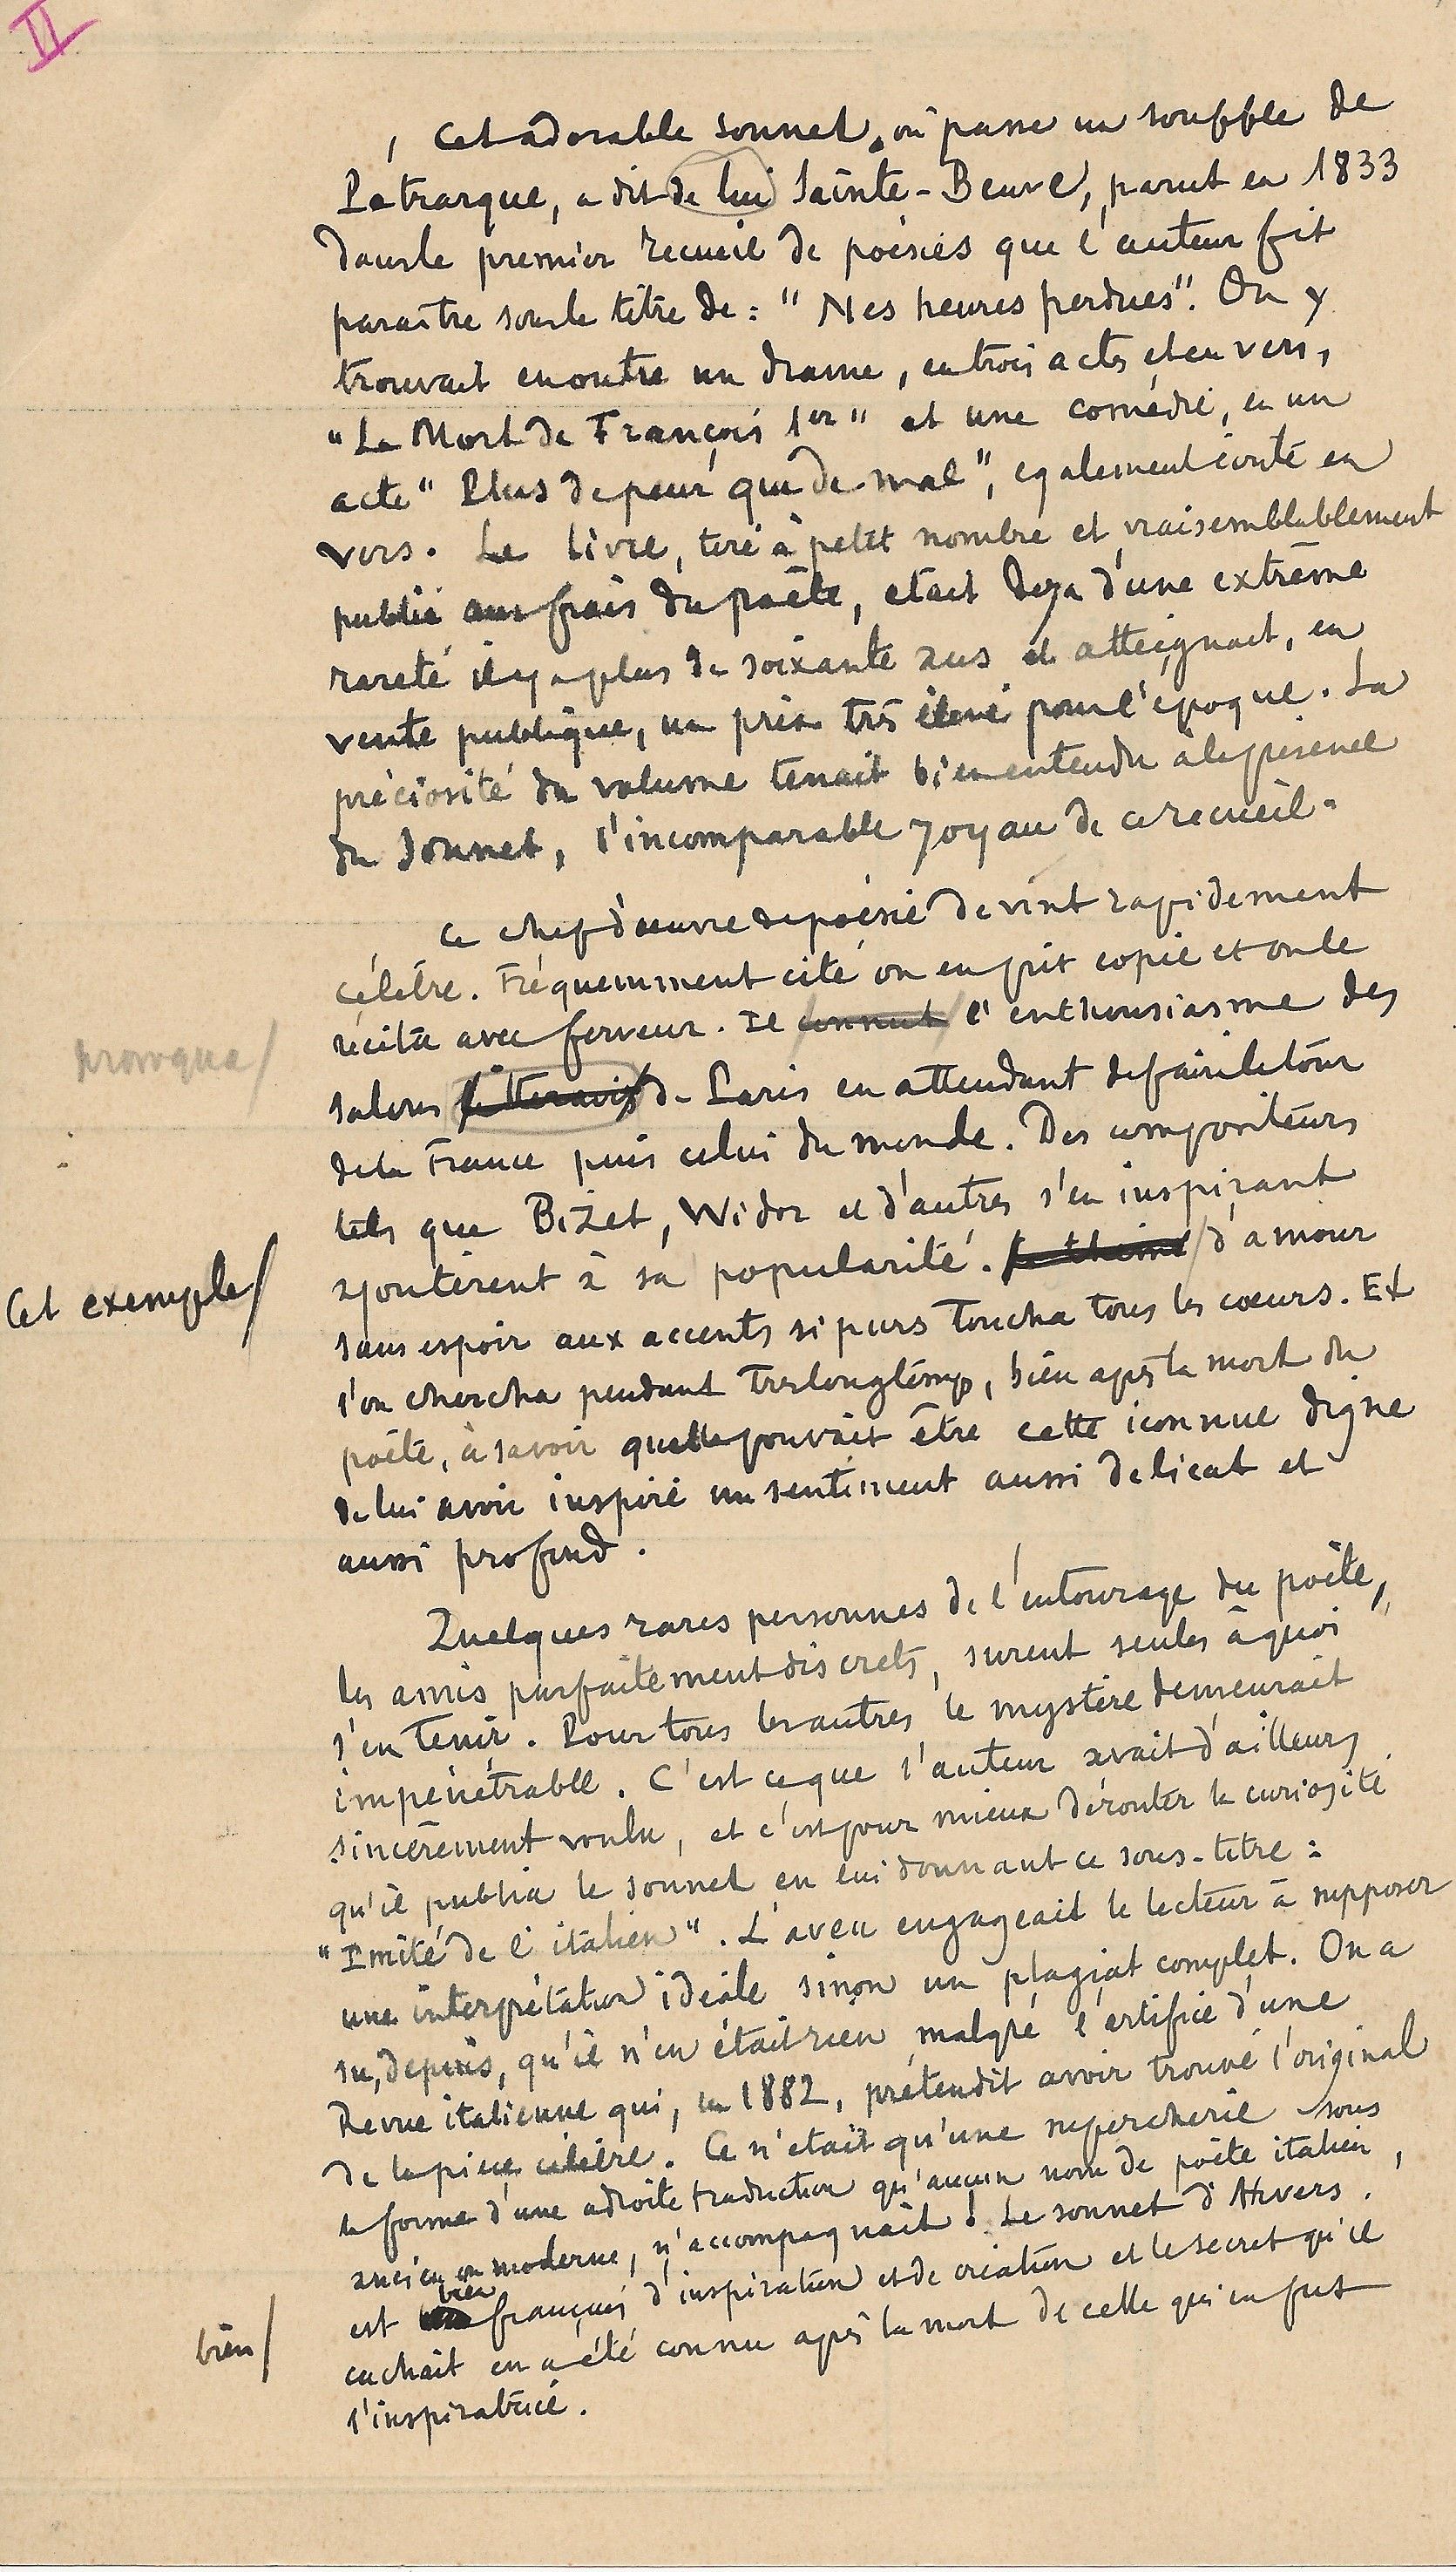 II
Cet adorable sonnet, où passe un souffle de
Pétrarque, a dit de lui Sainte-Beuve, parut en 1833
dans le premier recueil de poésies que l'auteur fit
paraître sous le titre de : "Mes heures perdues". On y
trouvait en outre un drame, en trois actes et en vers,
"La Mort de François 1er" et une comédie, en un
acte "Plus de peur que de mal", egalement écrite en
vers. Le livre, tiré à petit nombre et vraisemblablement
publié aux frais du poëte, était deja d'une extrême
rareté il y a plus de soixante ans et atteignait, en
vente publique, un prix très élevé pour l'époque. La
préciosité du volume tenait bien entendu à la présence
du Sonnet, l'incomparable joyau de ce recueil.
Ce chef d'œuvre de poésie devint rapidement
célèbre. Fréquemment cité on en prit copie et on le
récita avec ferveur. Il connut l'enthousiasme des
provoqua/
salons littéraires de Paris en attendant de faire le tour
de la France puis celui du monde. Des compositeurs
tels que Bizet, Widor et d'autres s'en inspirant
ajoutèrent à sa popularité. Le thème d'amour
Cet exemple/
sans espoir aux accents si purs toucha tous les cœurs. Et
l'on chercha pendant très longtemps, bien après la mort du
poëte, à savoir quelle pouvait être cette iconnue digne
de lui avoir inspiré un sentiment aussi delicat et
aussi profond.
Quelques rares personnes de l'entourage du poëte,
les amis parfaitement discrets, surent seules à quoi
s'en tenir. Pour tous les autres le mystère demeurait
impénétrable. C'est ce que l'auteur avait d'ailleurs
sincèrement voulu, et c'est pour mieux dérouter la curiosité
qu'il publia le sonnet en lui donnant ce sous-titre :
"Imité de l'italien". L'aveu engageait le lecteur à supposer
une interprétation idéale sinon un plagiat complet. On a
su, depuis, qu'il n'en était rien malgré l'artifice d'une
Revue italienne qui, en 1882, prétendit avoir trouvé l'original
de la pièce célèbre. Ce n'était qu'une supercherie sous
la forme d'une adroite traduction qu'aucun nom de poëte italien,
ancien ou moderne, n'accompagnait ! Le sonnet d'Arvers
est bien français d'inspiration et de création et le secret qu'il
bien/
cachait en a été connu après la mort de celle qui en fut
l'inspiratrice.